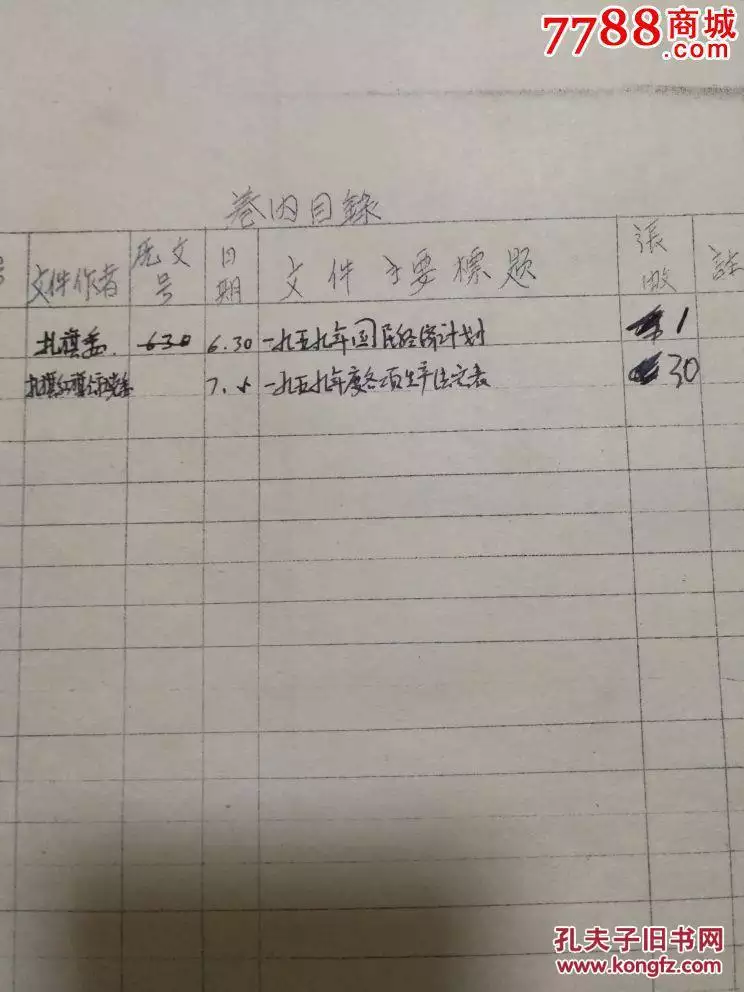 7788商城
.com
卷内目錄
号 文件作者 原文号 日期 文件主要標题 張数 註
扎旗委. 630 6.30 一九五九年国民经济计划 1
扎旗红旗 7.5 一九五九年度各项生产 表 30
孔夫子旧书网
www.kongfz.com